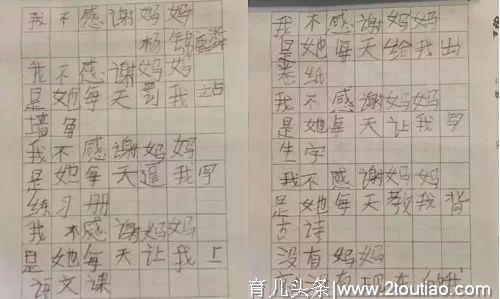 我不感谢妈妈
杨锦
我不感谢妈妈
是她每天罚我站
墙角
我不感谢妈妈
是她每天逼我写
练习册
我不感谢妈妈
是她每天让我上
语文课
我不感谢妈妈
是她每天给我出
卷纸
我不感谢妈妈
是她每天让我写
生字
我不感谢妈妈
是她每天教我背
古诗
没有妈妈
没有现在的我
育儿头条
www.2toutiao.com